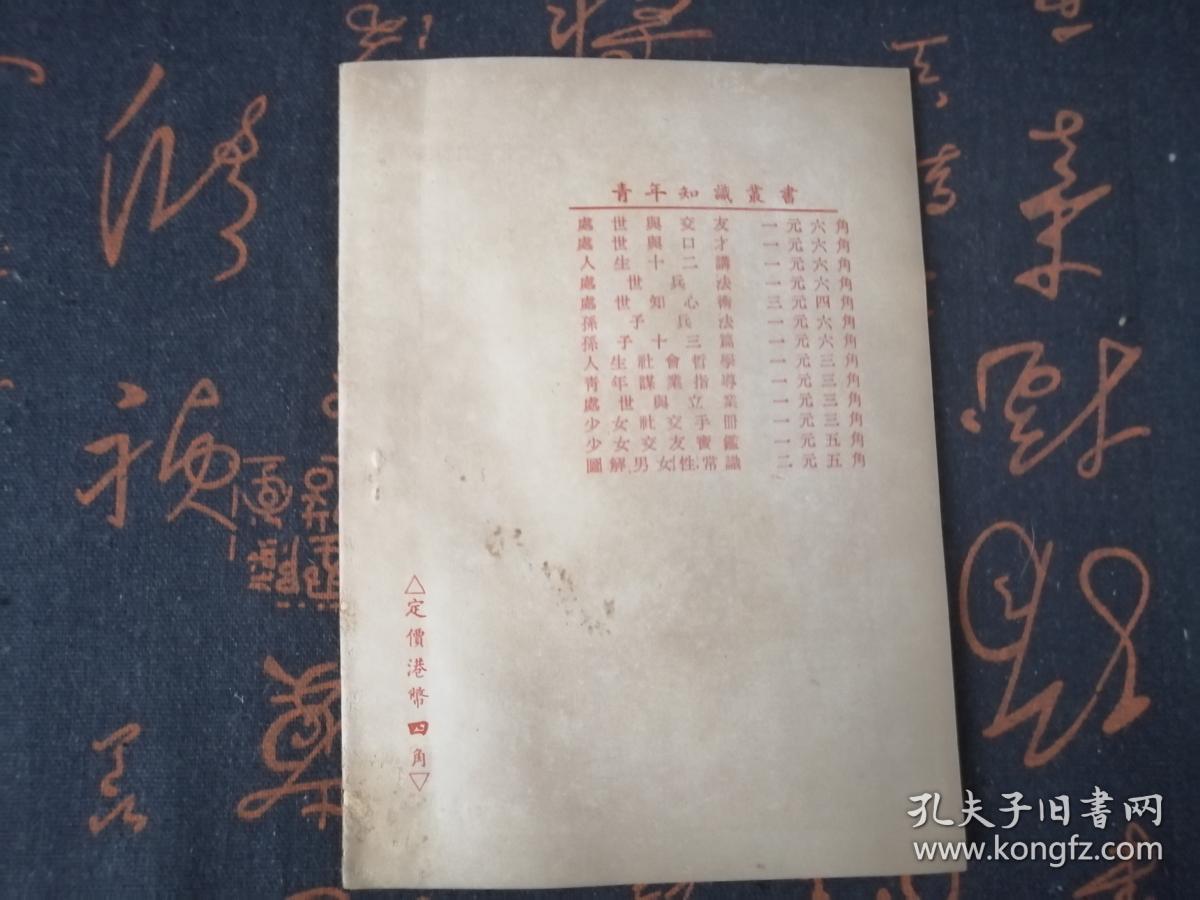 青年知識叢書
處世與交友 一元六角
處世與口才 一元六角
人生十二講 一元六角
處世兵法 一元六角
處世知心術 三元四角
孫子兵法 一元六角
孫子十三篇 一元六角
人生社會哲學 一元三角
青年謀業指導 一元三角
處世與立業 一元三角
少女社交手冊 一元三角
少女交友寶鑑 一元五角
圖解男女性常識 二元五角
△定價港幣四角▽
孔夫子旧书网
www.kongfz.com